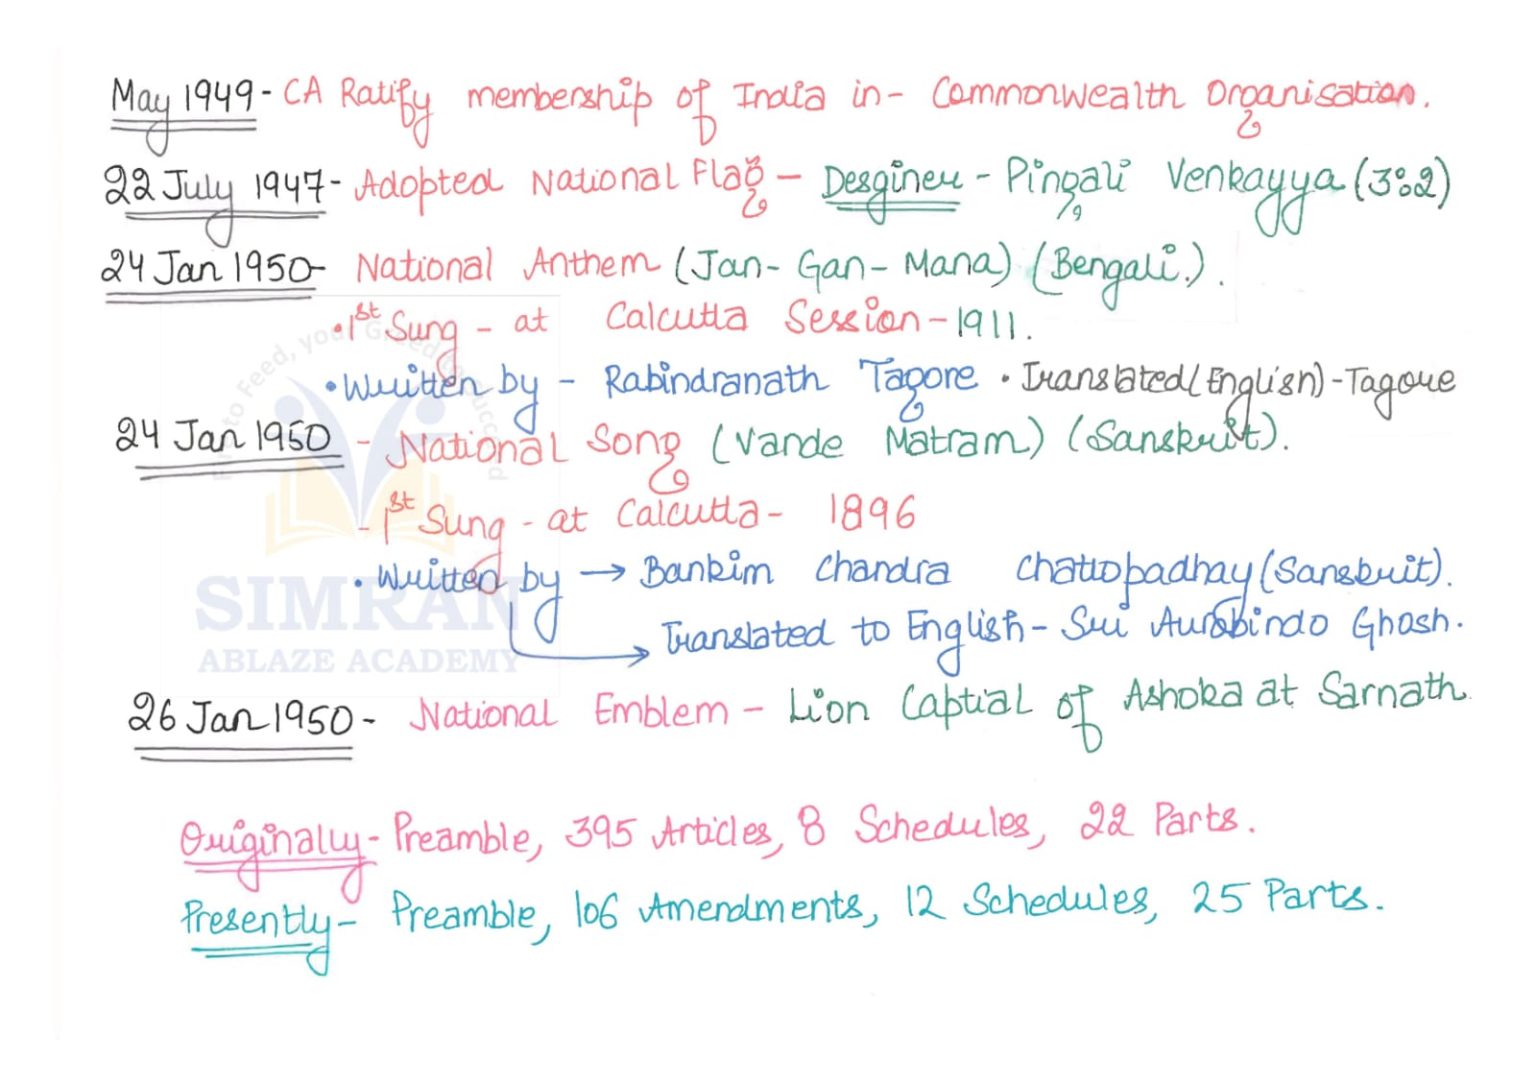 May 1949 - CA Ratify membership of India in - Commonwealth Organisation.
22 July 1947 - Adopted National Flag - Desginer - Pingali Venkayya (3:2)
24 Jan 1950 - National Anthem (Jan - Gan - Mana) (Bengali.).
• 1st Sung - at Calcutta Session - 1911.
• Written by - Rabindranath Tagore • Translated (English) - Tagore
24 Jan 1950 - National Song (Vande Matram) (Sanskrit).
- 1st Sung - at Calcutta - 1896
• Written by → Bankim Chandra Chattopadhay (Sanskrit).
Translated to English - Sri Aurobindo Ghosh.
SIMRAN
ABLAZE ACADEMY
26 Jan 1950 - National Emblem - Lion Captial of Ashoka at Sarnath
Originally - Preamble, 395 Articles, 8 Schedules, 22 Parts.
Presently - Preamble, 106 Amendments, 12 Schedules, 25 Parts.